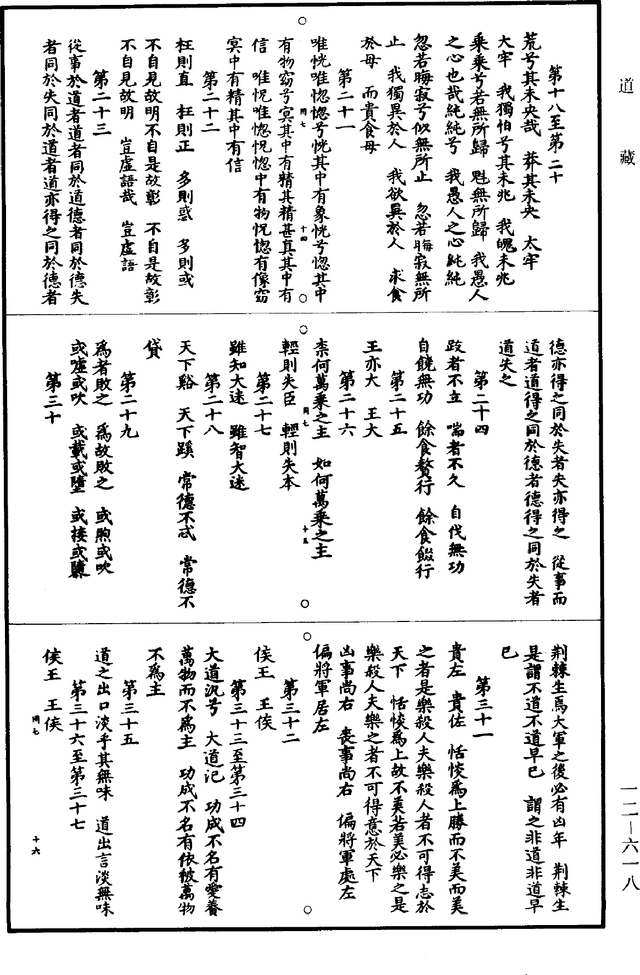 道藏
第十八至第二十
荒兮其未央哉　莽其未央　太牢
大牢　我獨怕兮其未兆　我魄未兆
乘乘兮若無所歸　魁無所歸　我愚人
之心也哉純純兮　我愚人之心純純
忽若晦寂兮似無所止　忽若晦寂無所
止　我獨異於人　我欲異於人　求食
於母　而貴食母
第二十一
唯恍唯惚惚兮恍其中有象恍兮惚其中
有物窈兮冥其中有精其精甚真其中有
信　唯怳唯惚怳惚中有物怳惚有像窈
冥中有精其中有信
第二十二
枉則直　枉則正　多則惑　多則或
不自見故明不自是故彰　不自是故彰
不自見故明　豈虛語哉　豈虛語
第二十三
從事於道者道者同於道德者同於德失
者同於失同於道者道亦得之同於德者
同七
十四
德亦得之同於失者失亦得之　從事而
道者道得之同於德者德得之同於失者
道失之
第二十四
跂者不立　喘者不久　自伐無功
自饒無功　餘食贅行　餘食餟行
第二十五
王亦大　王大
第二十六
柰何萬乘之主　如何萬乘之主
輕則失臣　輕則失本
第二十七
雖知大迷　雖智大迷
第二十八
天下谿　天下蹊　常德不忒　常德不
貸
第二十九
為者敗之　為故敗之　或煦或吹
或噓或吹　或載或墮　或接或隳
第三十
同七
十五
荆棘生焉大軍之後必有凶年　荆棘生
是謂不道不道早已　謂之非道非道早
已
第三十一
貴左　貴佐　恬惔為上勝而不美而美
之者是樂殺人夫樂殺人者不可得志於
天下　恬惔為上故不美若美必樂之是
樂殺人夫樂之者不可得意於天下
凶事尚右　喪事尚右　偏將軍處左
偏將軍居左
第三十二
侯王　王侯
第三十三至第三十四
大道汎兮　大道氾　功成不名有愛養
萬物而不為主　功成不名有依被萬物
不為主
第三十五
道之出口淡乎其無味　道出言淡無味
第三十六至第三十七
侯王　王侯
同七
十六
一二—六一八